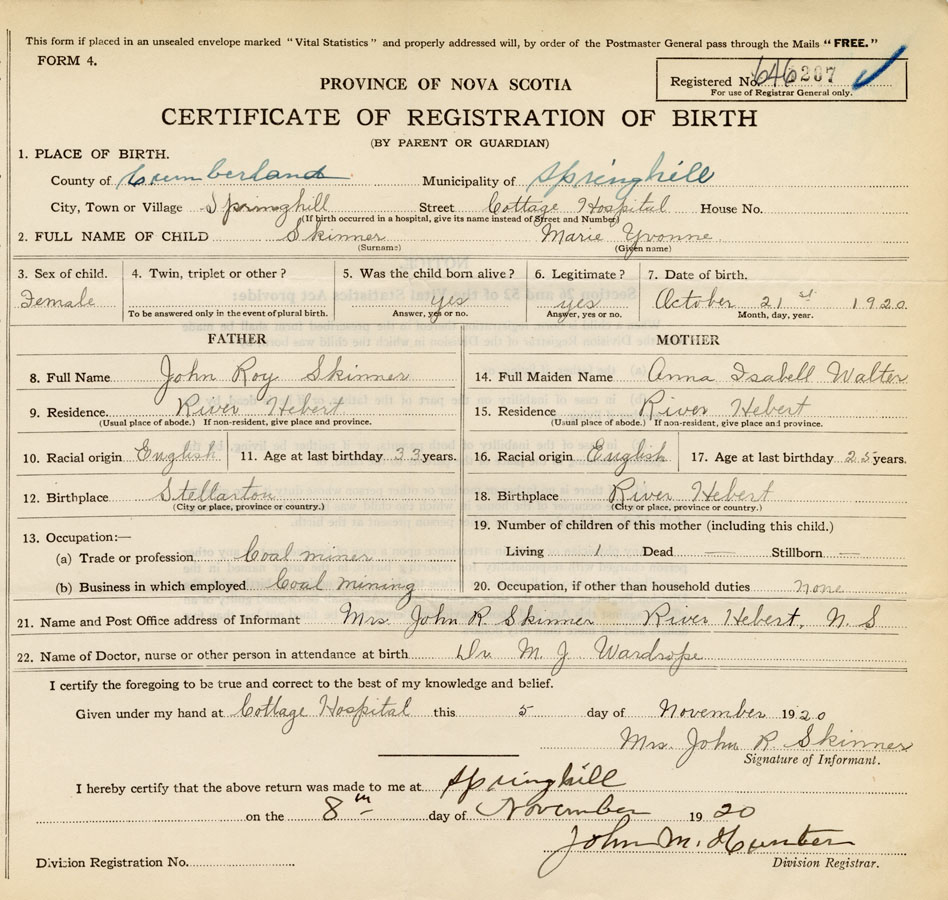 This form if placed in an unsealed envelope marked "Vital Statistics" and properly addressed will, by order of the Postmaster General pass through the Mails "FREE."
FORM 4.
Registered No. 646207
For use of Registrar General only.
PROVINCE OF NOVA SCOTIA
CERTIFICATE OF REGISTRATION OF BIRTH
(BY PARENT OR GUARDIAN)
1. PLACE OF BIRTH.
County of Cumberland Municipality of Springhill
City, Town or Village Springhill Street Cottage Hospital House No.
(If birth occurred in a hospital, give its name instead of Street and Number)
2. FULL NAME OF CHILD Skinner Marie Yvonne
(Surname) (Given name)
3. Sex of child. 4. Twin, triplet or other? 5. Was the child born alive? 6. Legitimate? 7. Date of birth.
Female yes yes October 21st 1920
To be answered only in the event of plural birth. Answer, yes or no. Answer, yes or no. Month, day, year.
FATHER MOTHER
8. Full Name John Roy Skinner 14. Full Maiden Name Anna Isabell Walter
9. Residence. River Hebert 15. Residence River Hebert
(Usual place of abode.) If non-resident, give place and province. (Usual place of abode.) If non-resident, give place and province.
10. Racial origin English 11. Age at last birthday 33 years. 16. Racial origin English 17. Age at last birthday 25 years.
12. Birthplace Stellarton 18. Birthplace River Hebert
(City or place, province or country.) (City or place, province or country.)
13. Occupation:— 19. Number of children of this mother (including this child.)
(a) Trade or profession Coal miner Living 1 Dead — Stillborn —
(b) Business in which employed Coal mining 20. Occupation, if other than household duties none
21. Name and Post Office address of Informant Mrs. John R Skinner River Hebert, N. S
22. Name of Doctor, nurse or other person in attendance at birth Dr M. J. Wardrope
I certify the foregoing to be true and correct to the best of my knowledge and belief.
Given under my hand at Cottage Hospital this 5 day of November 1920
Mrs. John R. Skinner
Signature of Informant.
I hereby certify that the above return was made to me at Springhill
on the 8th day of November 1920
John M. Hunter
Division Registration No. Division Registrar.